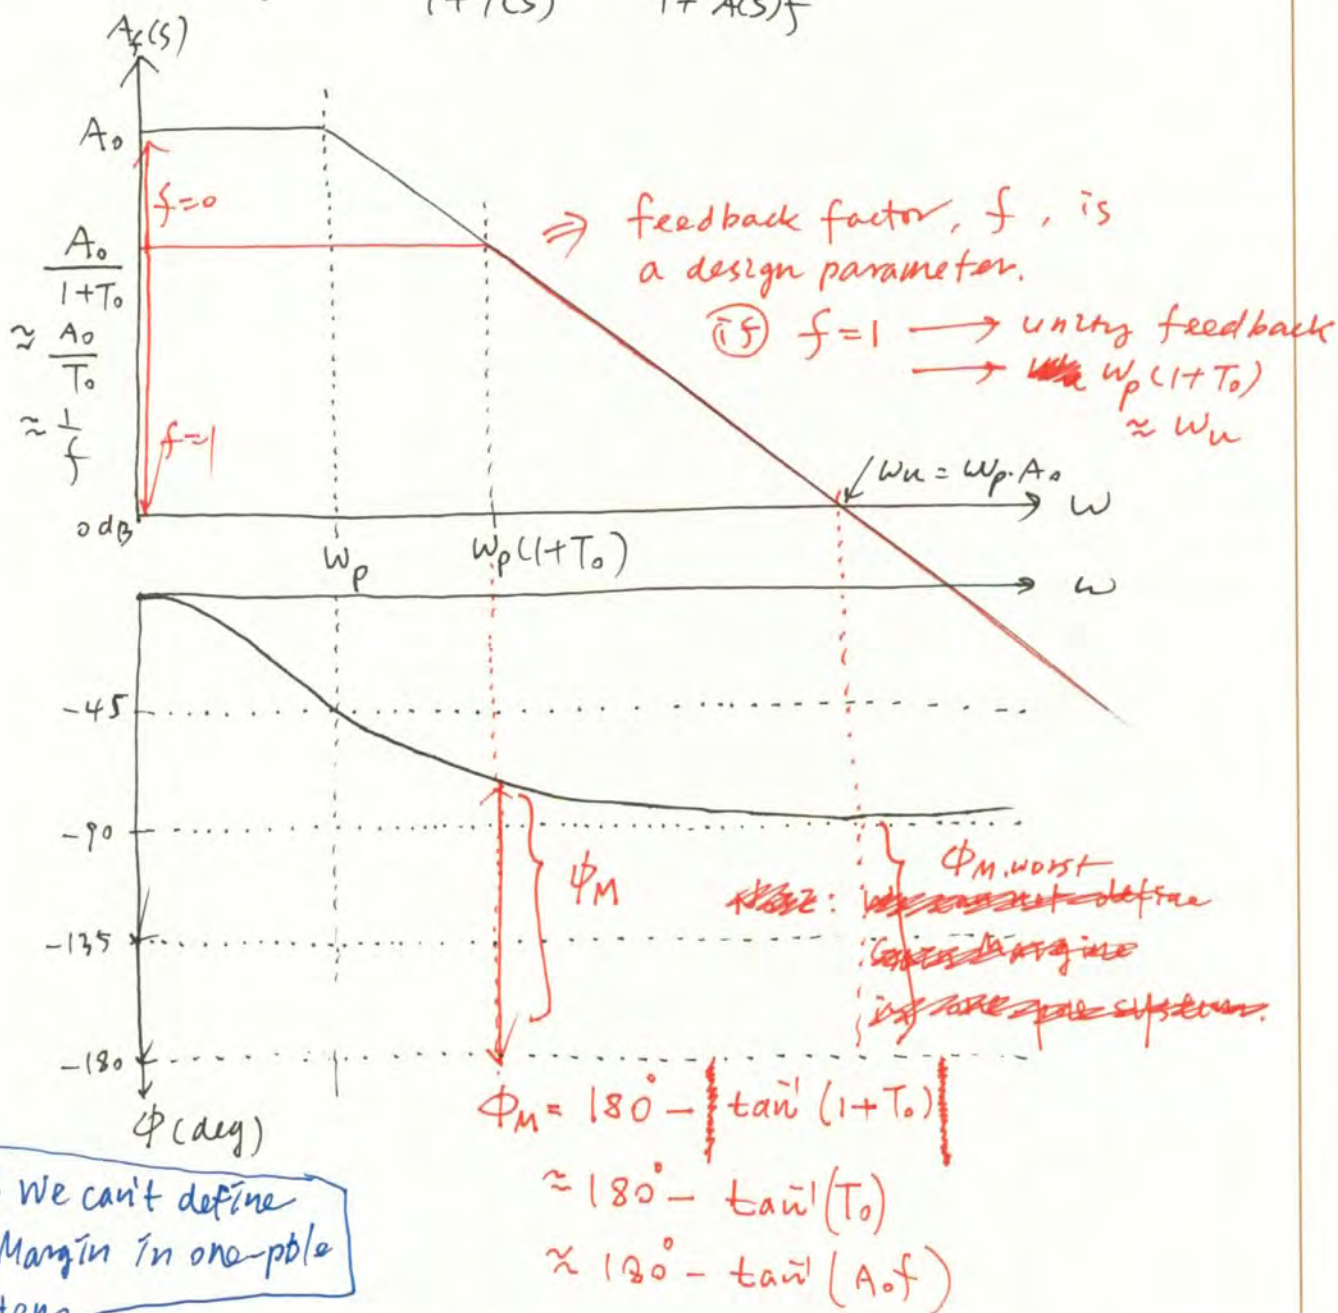 1+T(s) 1+A(s)f
Af(s)
A₀
f=0
A₀
1+T₀
≈ A₀
T₀
≈ 1
f
f=1
0dB
⇒ feedback factor, f, is
a design parameter.
if f=1 → unity feedback
→ ωp(1+T₀)
≈ ωu
ωu = ωp·A₀
ω
ωp
ωp(1+T₀)
ω
-45
-90
-135
-180
ϕ(deg)
ϕM
ϕM.worst
define
Margine
ϕM = 180° - tan⁻¹(1+T₀)
≈ 180° - tan⁻¹(T₀)
≈ 180° - tan⁻¹(A₀f)
We can't define
Margin in one-pole